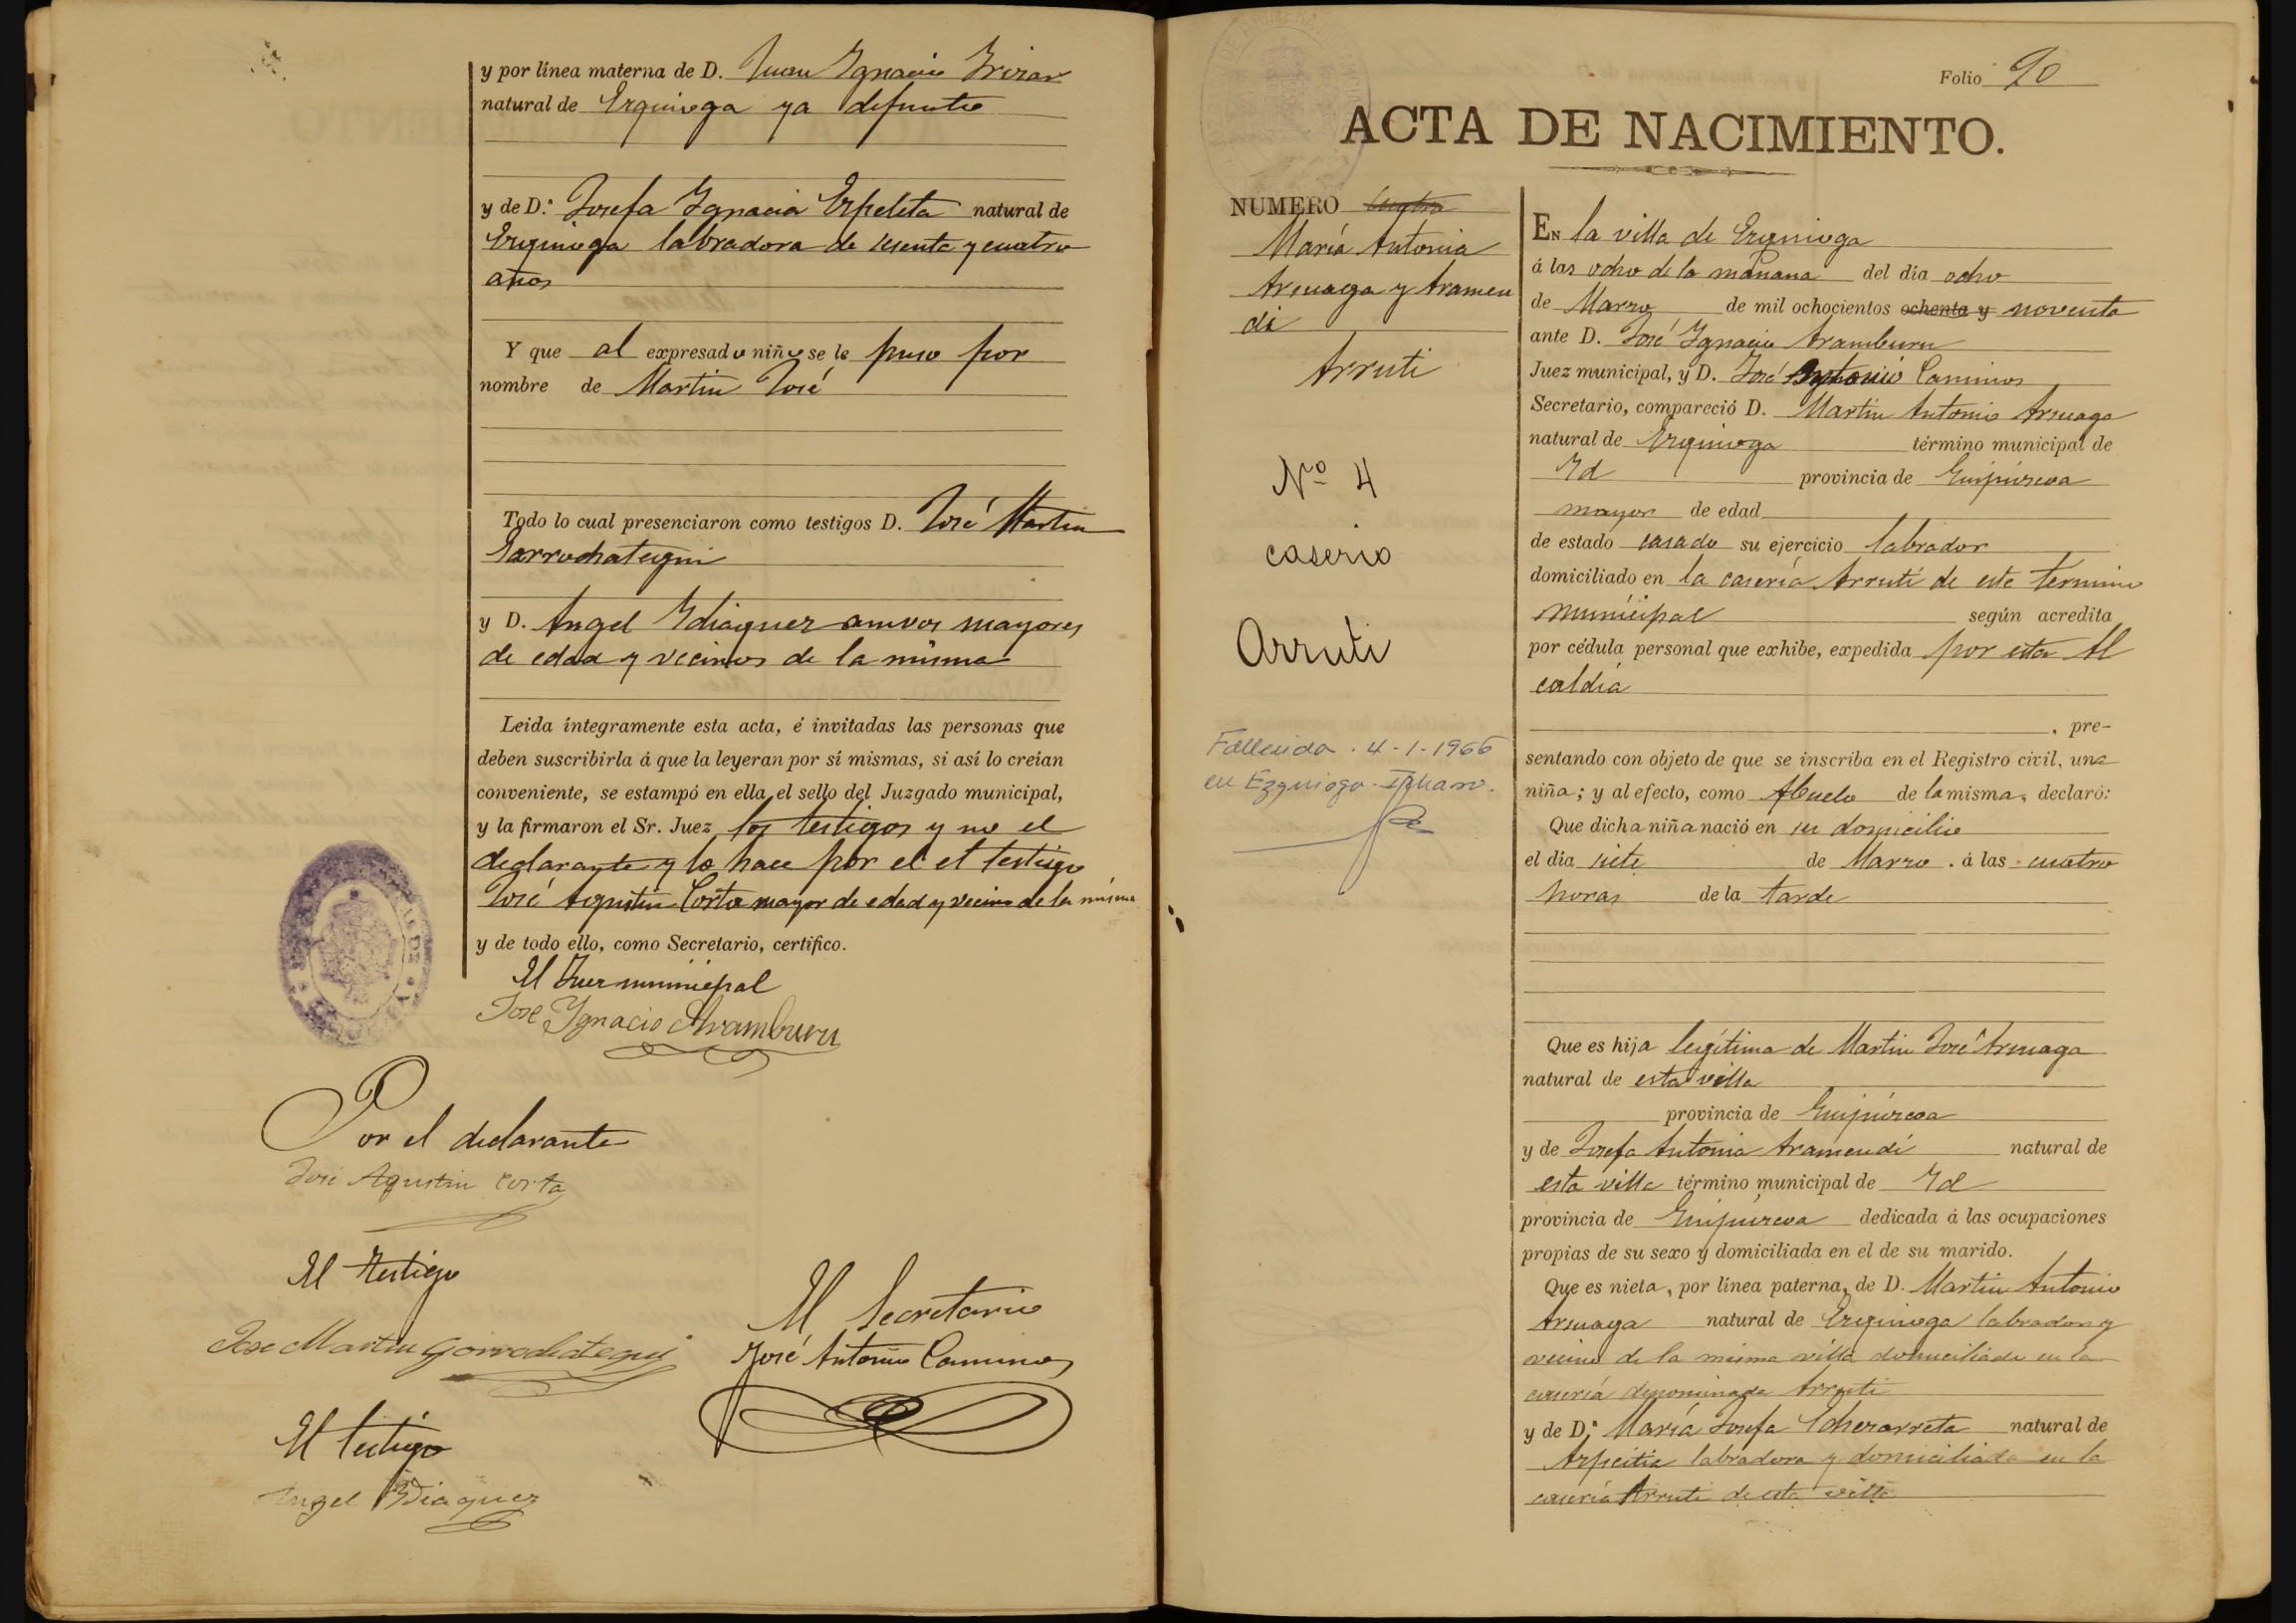 y por línea materna de D. Juan Ygnacio Irizar
natural de Ezquioga ya difunto
y de D.ª Josefa Ygnacia Ezpeleta natural de
Ezquioga labradora de sesenta y cuatro
años
Y que al expresado niño se le puso por
nombre de Martin José
Todo lo cual presenciaron como testigos D. José Martin
Gorrochategui
y D. Angel Ydiaquez amvos mayores
de edad y vecinos de la misma
Leida íntegramente esta acta, é invitadas las personas que
deben suscribirla á que la leyeran por sí mismas, si así lo creían
conveniente, se estampó en ella el sello del Juzgado municipal,
y la firmaron el Sr. Juez, los testigos y no el
declarante y lo hace por el el testigo
José Agustin Corta mayor de edad y vecino de la misma
y de todo ello, como Secretario, certifico.
El Juez municipal
Jose Ygnacio Aramburu
Por el declarante
José Agustin Corta
El testigo
Jose Martin Gorrochategui
El testigo
Angel Ydiaquez
El Secretario
José Antonio Caminos
Folio 20
ACTA DE NACIMIENTO.
NUMERO cuatro
María Antonia
Arsuaga y Aramen
di
Arruti
Nº 4
caserio
Arruti
Fallecida . 4-1-1966
en Ezquioga-Itsaso.
EN la villa de Ezquioga
á las ocho de la mañana del día ocho
de Marzo de mil ochocientos ochenta y noventa
ante D. José Ygnacio Aramburu
Juez municipal, y D. José Antonio Caminos
Secretario, compareció D. Martin Antonio Arsuaga
natural de Ezquioga término municipal de
Yd provincia de Guipúzcoa
mayor de edad
de estado casado su ejercicio labrador
domiciliado en la casería Arruti de este termino
municipal según acredita
por cédula personal que exhibe, expedida por esta Al
caldia
, pre-
sentando con objeto de que se inscriba en el Registro civil, una
niña; y al efecto, como Abuelo de la misma, declaró:
Que dicha niña nació en su domicilio
el día siete de Marzo . á las cuatro
horas de la tarde
Que es hija legítima de Martin José Arsuaga
natural de esta villa
provincia de Guipúzcoa
y de Josefa Antonia Aramendi natural de
esta villa término municipal de Yd
provincia de Guipúzcoa dedicada á las ocupaciones
propias de su sexo y domiciliada en el de su marido.
Que es nieta, por línea paterna, de D. Martin Antonio
Arsuaga natural de Ezquioga labrador y
vecino de la misma villa domiciliado en la
casería denominada Arruti
y de D.ª María Josefa Echezarreta natural de
Azpeitia labradora y domiciliada en la
casería Arruti de esta villa